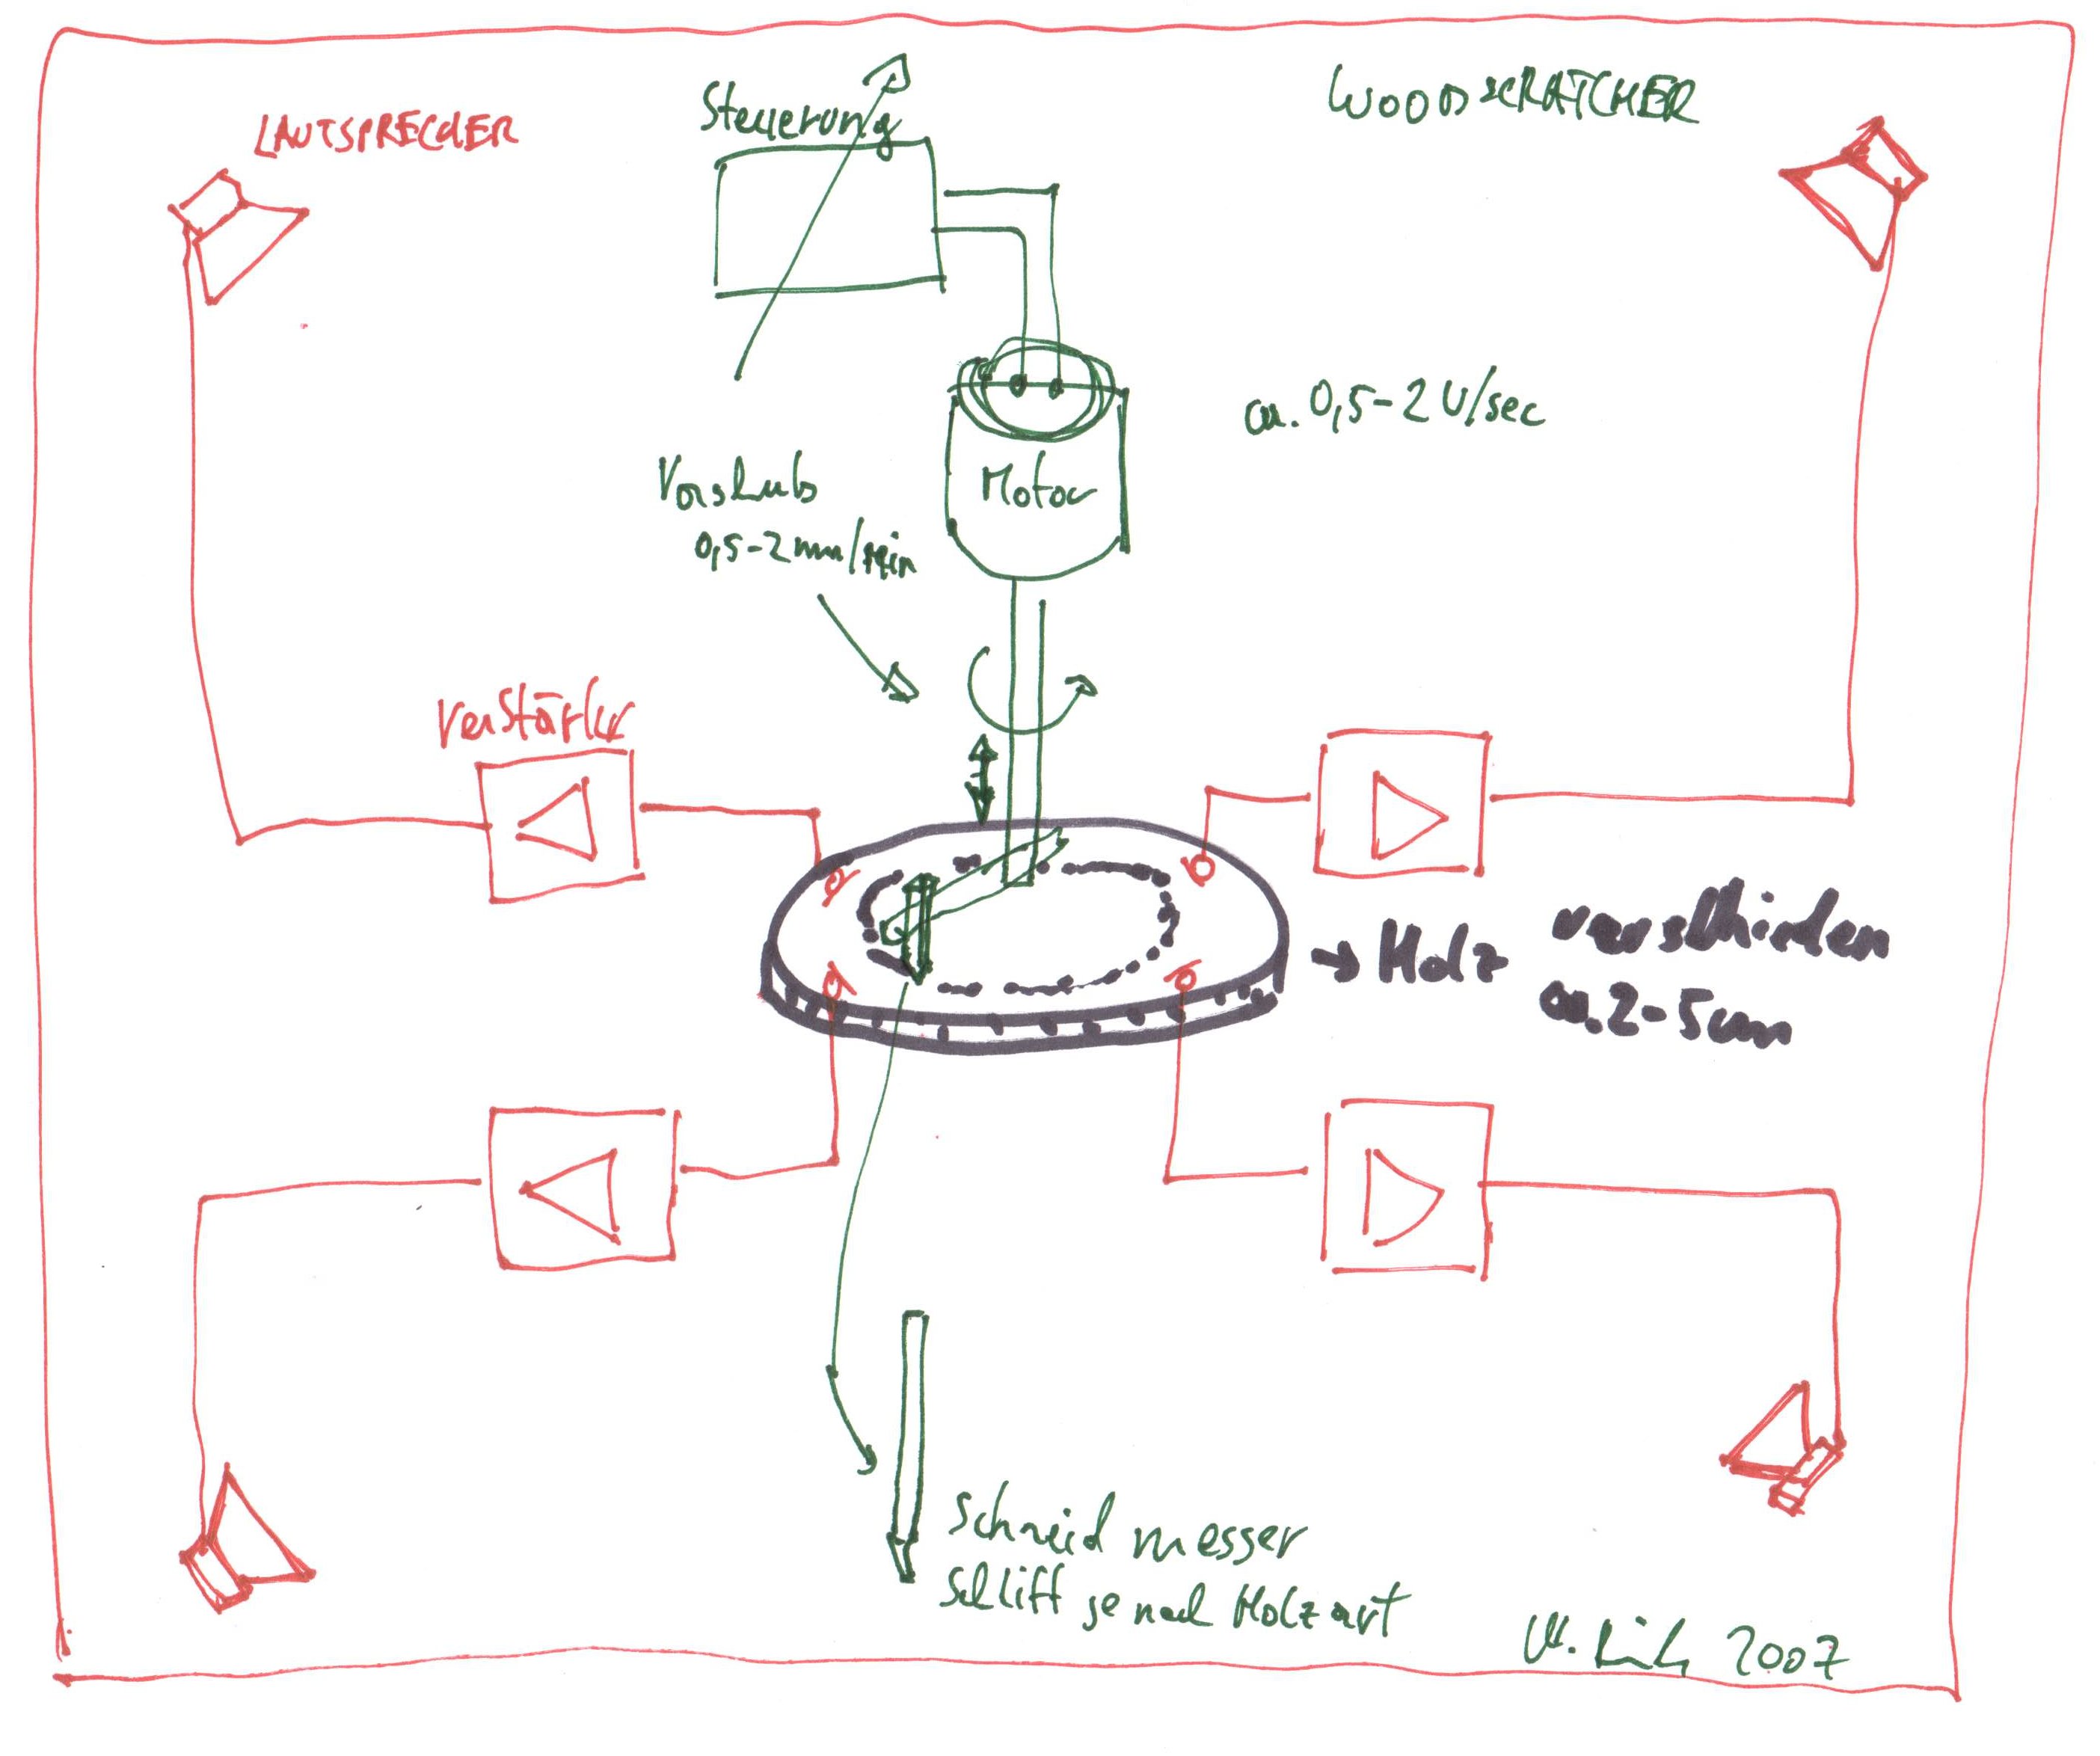 LAUTSPRECHER
Steuerung
WOODSCRATCHER
ca. 0,5-2 U/sec
Vorshub
0,5-2 mm/min
Motor
Verstärker
→ Holz verschieden
ca. 2-5cm
Schneid messer
Schliff je nach Holzart
2007